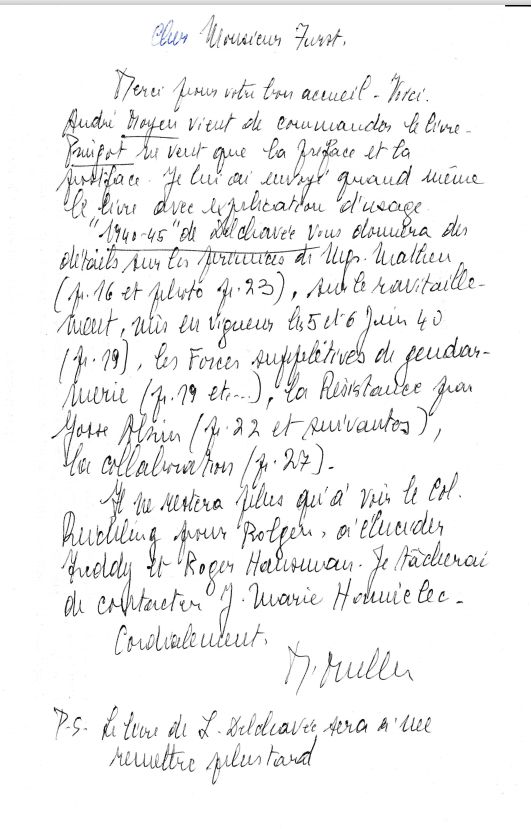 Cher Monsieur Furst,
Merci pour votre bon accueil - Voici.
André Moyen vient de commander le livre -
ne veut que la préface et la
postface. Je lui ai envoyé quand même
le livre avec explication d'usage
"1940-45" de Delchavée vous donnera des
détails sur les de Mgr. Mathen
(p. 16 et photo p. 23), sur le ravitaille-
ment, mis en vigueur les 5 et 6 Juin 40
(p. 19), les Forces supplétives de gendar-
merie (p. 19 et...), la Résistance par
(p. 22 et suivantes),
la collaboration (p. 27) -
Il ne restera plus qu'à voir le Col.
pour Bolgen, à élucider
Freddy et Roger Hansman. Je tâcherai
de contacter J. Marie
Cordialement,
P.S. Le livre de L. Delchavée sera à me
remettre plus tard